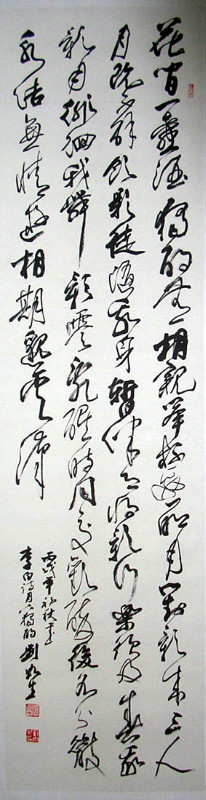 花間一壺酒獨酌無相親舉杯邀明月對影成三人
月既不解飲影徒隨我身暫伴月將影行樂須及春我
歌月徘徊我舞影零亂醒時同交歡醉後各分散
永結無情遊相期邈雲漢
丙戌年初秋書
李白詩月下獨酌劉